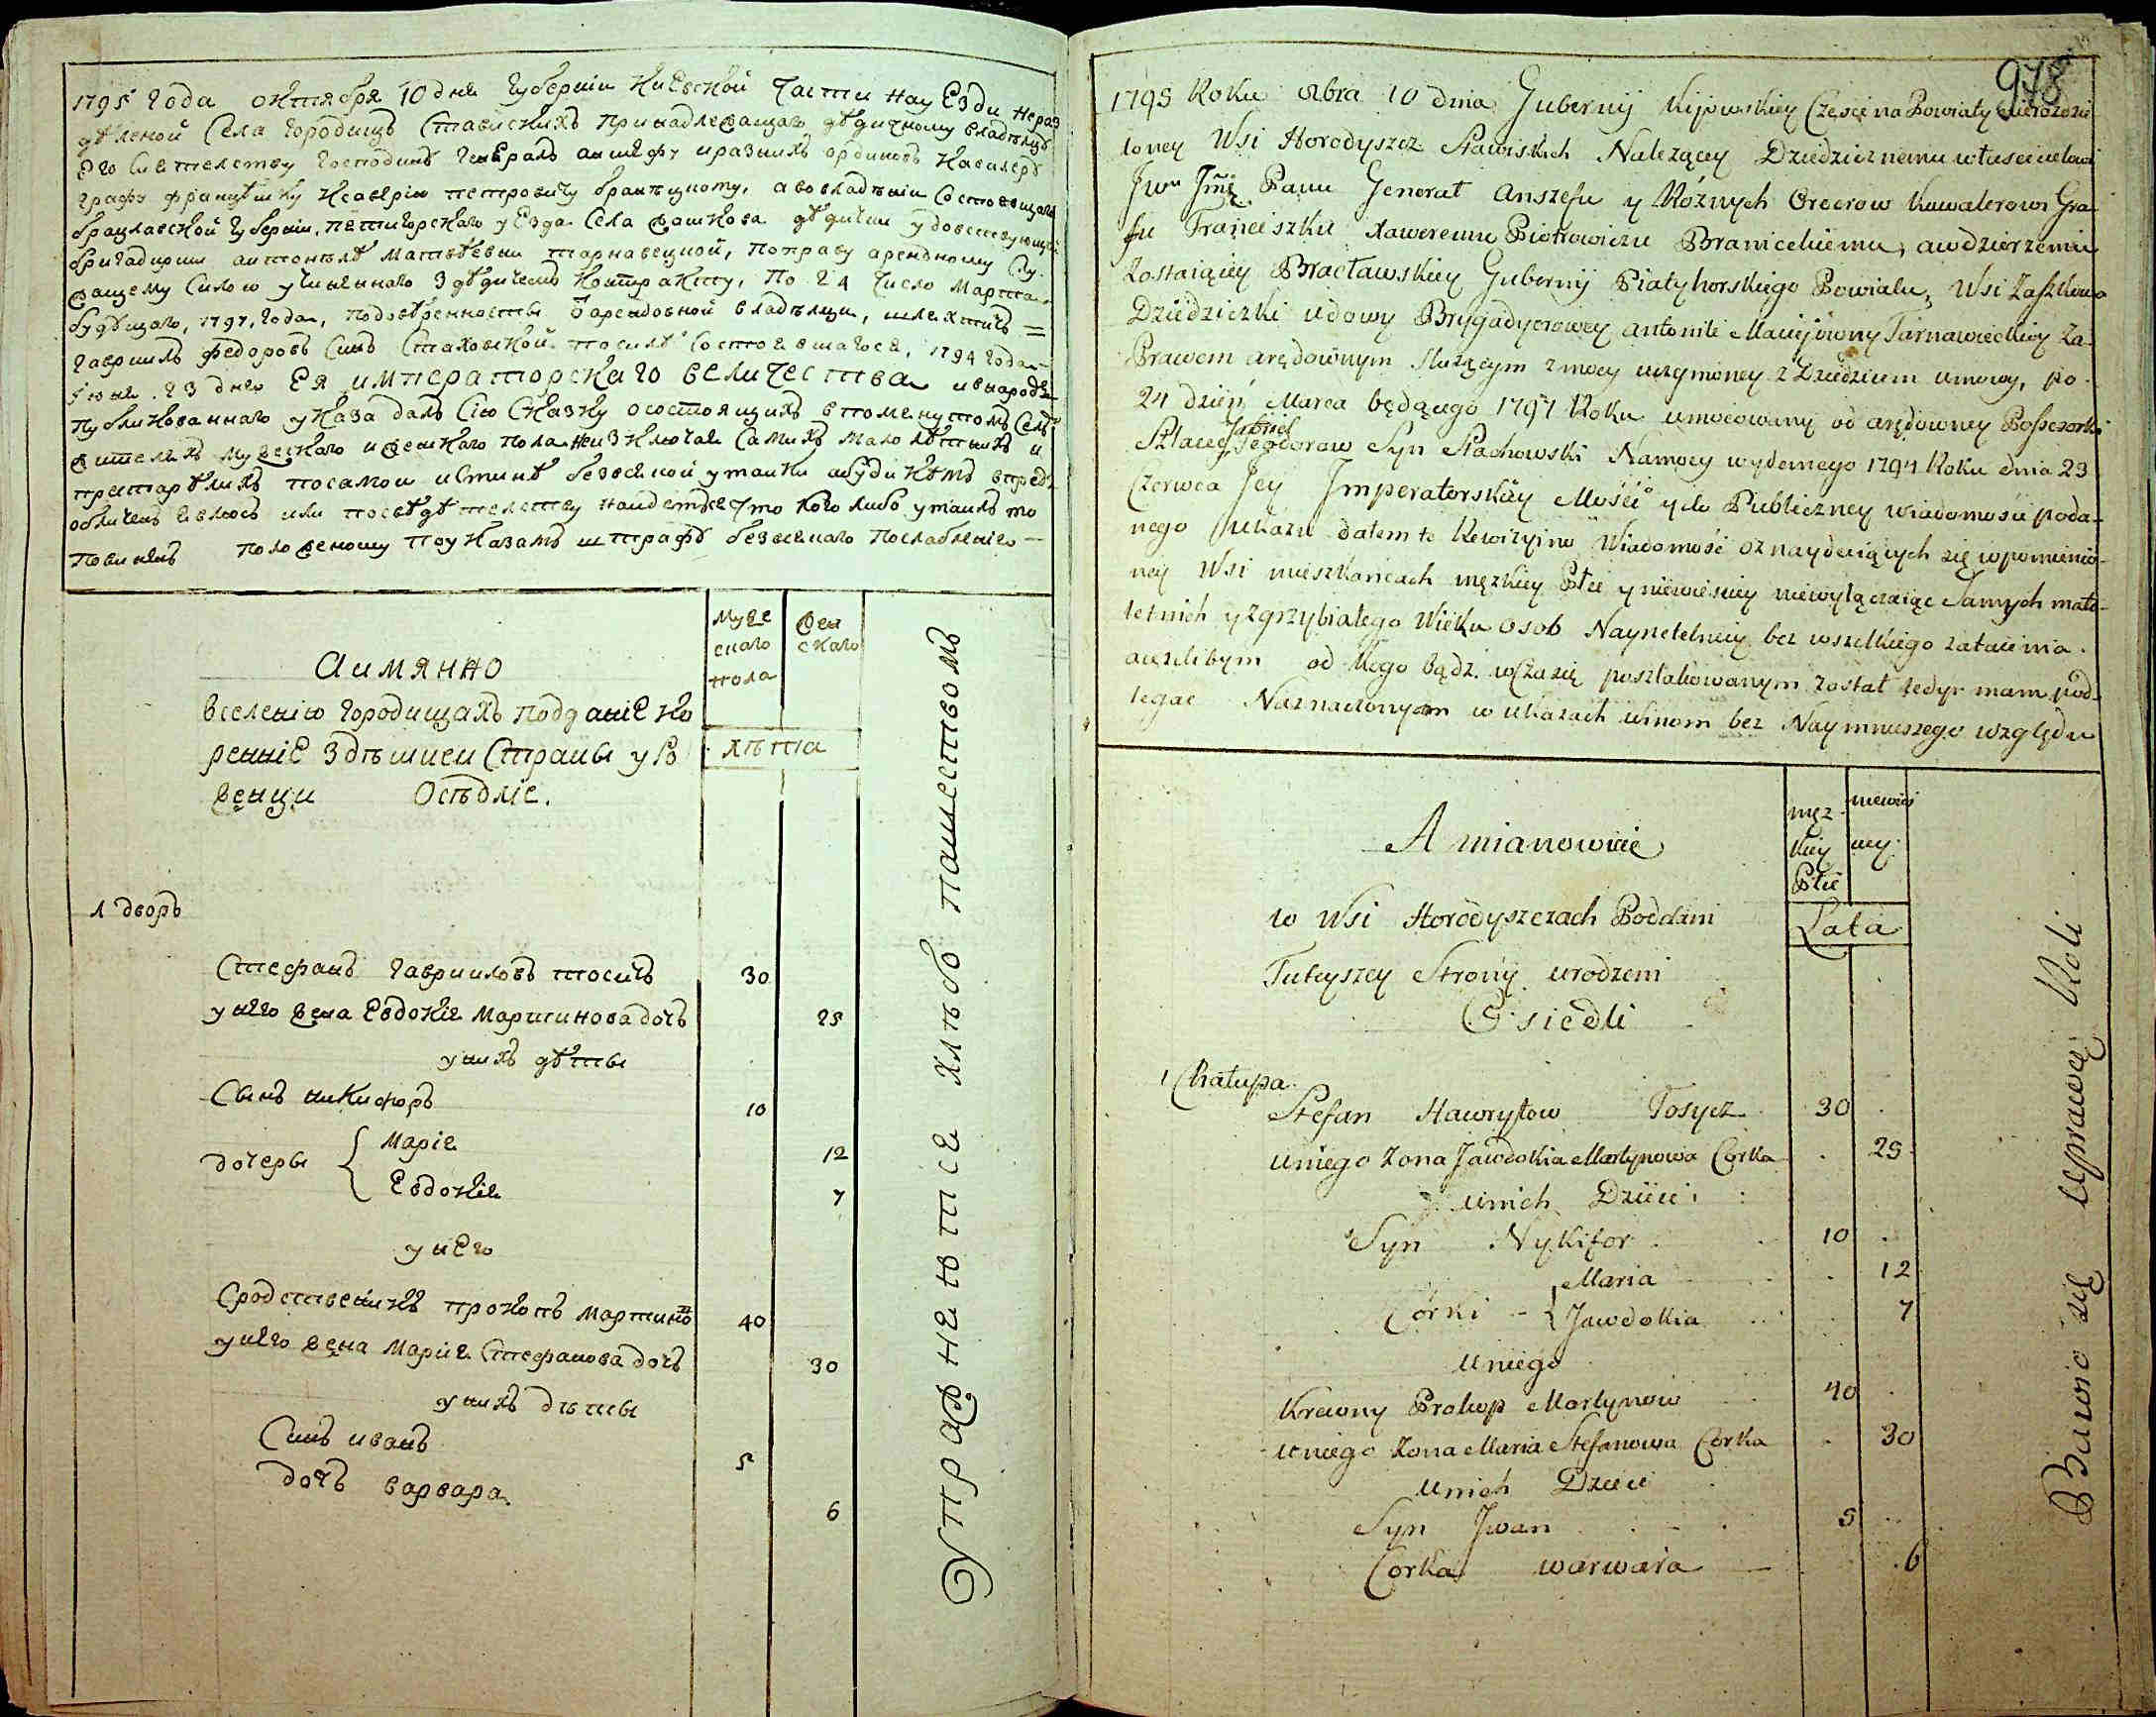 1795 года октября 10 дня Губернии Киевской части на уезди нераз
дѣленой Села Городищъ Ставискихъ принадлежащаго дѣдичному владѣлцѣ
его сиятелству господинѣ генералъ аншефу и разнихъ ординовъ кавалерѣ
графу францѣшку ксаверію петровичу браницкому, а во владѣніи состоящаго
брацлавской губерніи, пятигорскаго уезда села Жашкова дѣдички удовствующей
бригадирши антонѣлѣ матвѣевни тарнавецкой, по праву арендному слу
жащему силою учиненнаго з дѣдичемъ контракту, по 24 число марта
будущаго, 1797, года, по довѣренности ѿ арендовной владѣлци, шляхтичъ =
гавриилъ федоровъ синъ стаховской. по силѣ состоявшагося, 1794 года
іюня 23 дня Ея императорскаго величества и в народъ
публикованнаго указа далъ сію сказку о состоящихъ в помянутомъ селѣ
жителяхъ мужескаго и женскаго пола не изключая самихъ мало лѣтнихъ и
престарѣлихъ по самой истинѣ безвсякой утайки а буди кѣмъ впредь
обличенъ явлюсь или по свѣдѣтелству найдется что кого либо утаилъ то
повиненъ положеному по указамъ штрафѣ безвсякаго послабленія —
муже
скаго
пола
жен
скаго
лѣта
А имянно
в селенію городищахъ подданіе ко
ренніе здѣшнеи страны уро
женци осѣдліе.
1 дворъ
Стефанъ гавриловъ тосичъ 30
у него жена Евдокія Мартинова дочъ 25
у нихъ дѣты
Сынъ никифоръ 10
дочеры { Марія 12
Евдокія 7
у него
Сродственикъ прокопъ мартиновъ 40
у него жена Марія стефанова дочъ 30
у нихъ дѣты
Синъ иванъ 5
дочъ варвара 6
Упражняются хлѣбо пашествомъ
978
1795 Roku 8bra 10 dnia Gubernij Kijowskiey Części na Powiaty nierozdzie
loney Wsi Horodyszcz Stawiskich Należącey Dziedzicznemu właścicielowi
Jwu Jmę Panu Generał Anszefu y Różnych Orderow Kawalerowi Gra
fu Franciszku Xaweremu Piotrowiczu Branickiemu, a w dzierzeniu
Zostaiącey Bracławskiey Gubernij Piatyhorskiego Powiatu, Wsi Zaszkowa
Dziedziczki udowy Brygadyerowey Antonili Maciejowny Tarnawieckiey za
Prawem arędownym służącym z mocy uczynioney z Dziedzicem umowy, po
24 dzień Marca będącego 1797 Roku umocowany od arędowney Possesorki
Szlachcic Gabriel Teodorow Syn Stachowski Na mocy wydanego 1794 Roku dnia 23
Czerwca Jey Imperatorskiey Mości y do Publiczney wiadomości poda-
nego ukazu dałem tę Rewizyiną Wiadomość o znayduiących się w pomienio-
ney Wsi mieszkańcach męzkiey Płci y niewieściey niewyłączaiąc Samych mało-
letnich y zgrzybiałego Wieku osob Nayrzetelniey bez wszelkiego zataienia
a ieżelibym od kogo bądź w czasie poszlakowanym został tedy mam pod-
legać Naznaczonym w ukazach winom bez Naymnieyszego względu
męz-
kiey
Płci
niewieś
ciey
Lata
A mianowicie
w Wsi Horodyszczach Poddani
Tuteyszey Strony urodzeni
Osiedli
1 Chałupa
Stefan Hawryłow Tosycz 30
u niego Zona Jawdokia Martynowa Corka 25
u nich Dzieci
Syn Nykifor 10
Corki { Maria 12
Jawdokia 7
u niego
Krewny Prokop Martynow 40
u niego Zona Maria Stefanowa Corka 30
u nich Dzieci
Syn Jwan 5
Corka warwara 6
Bawio się uprawą Roli